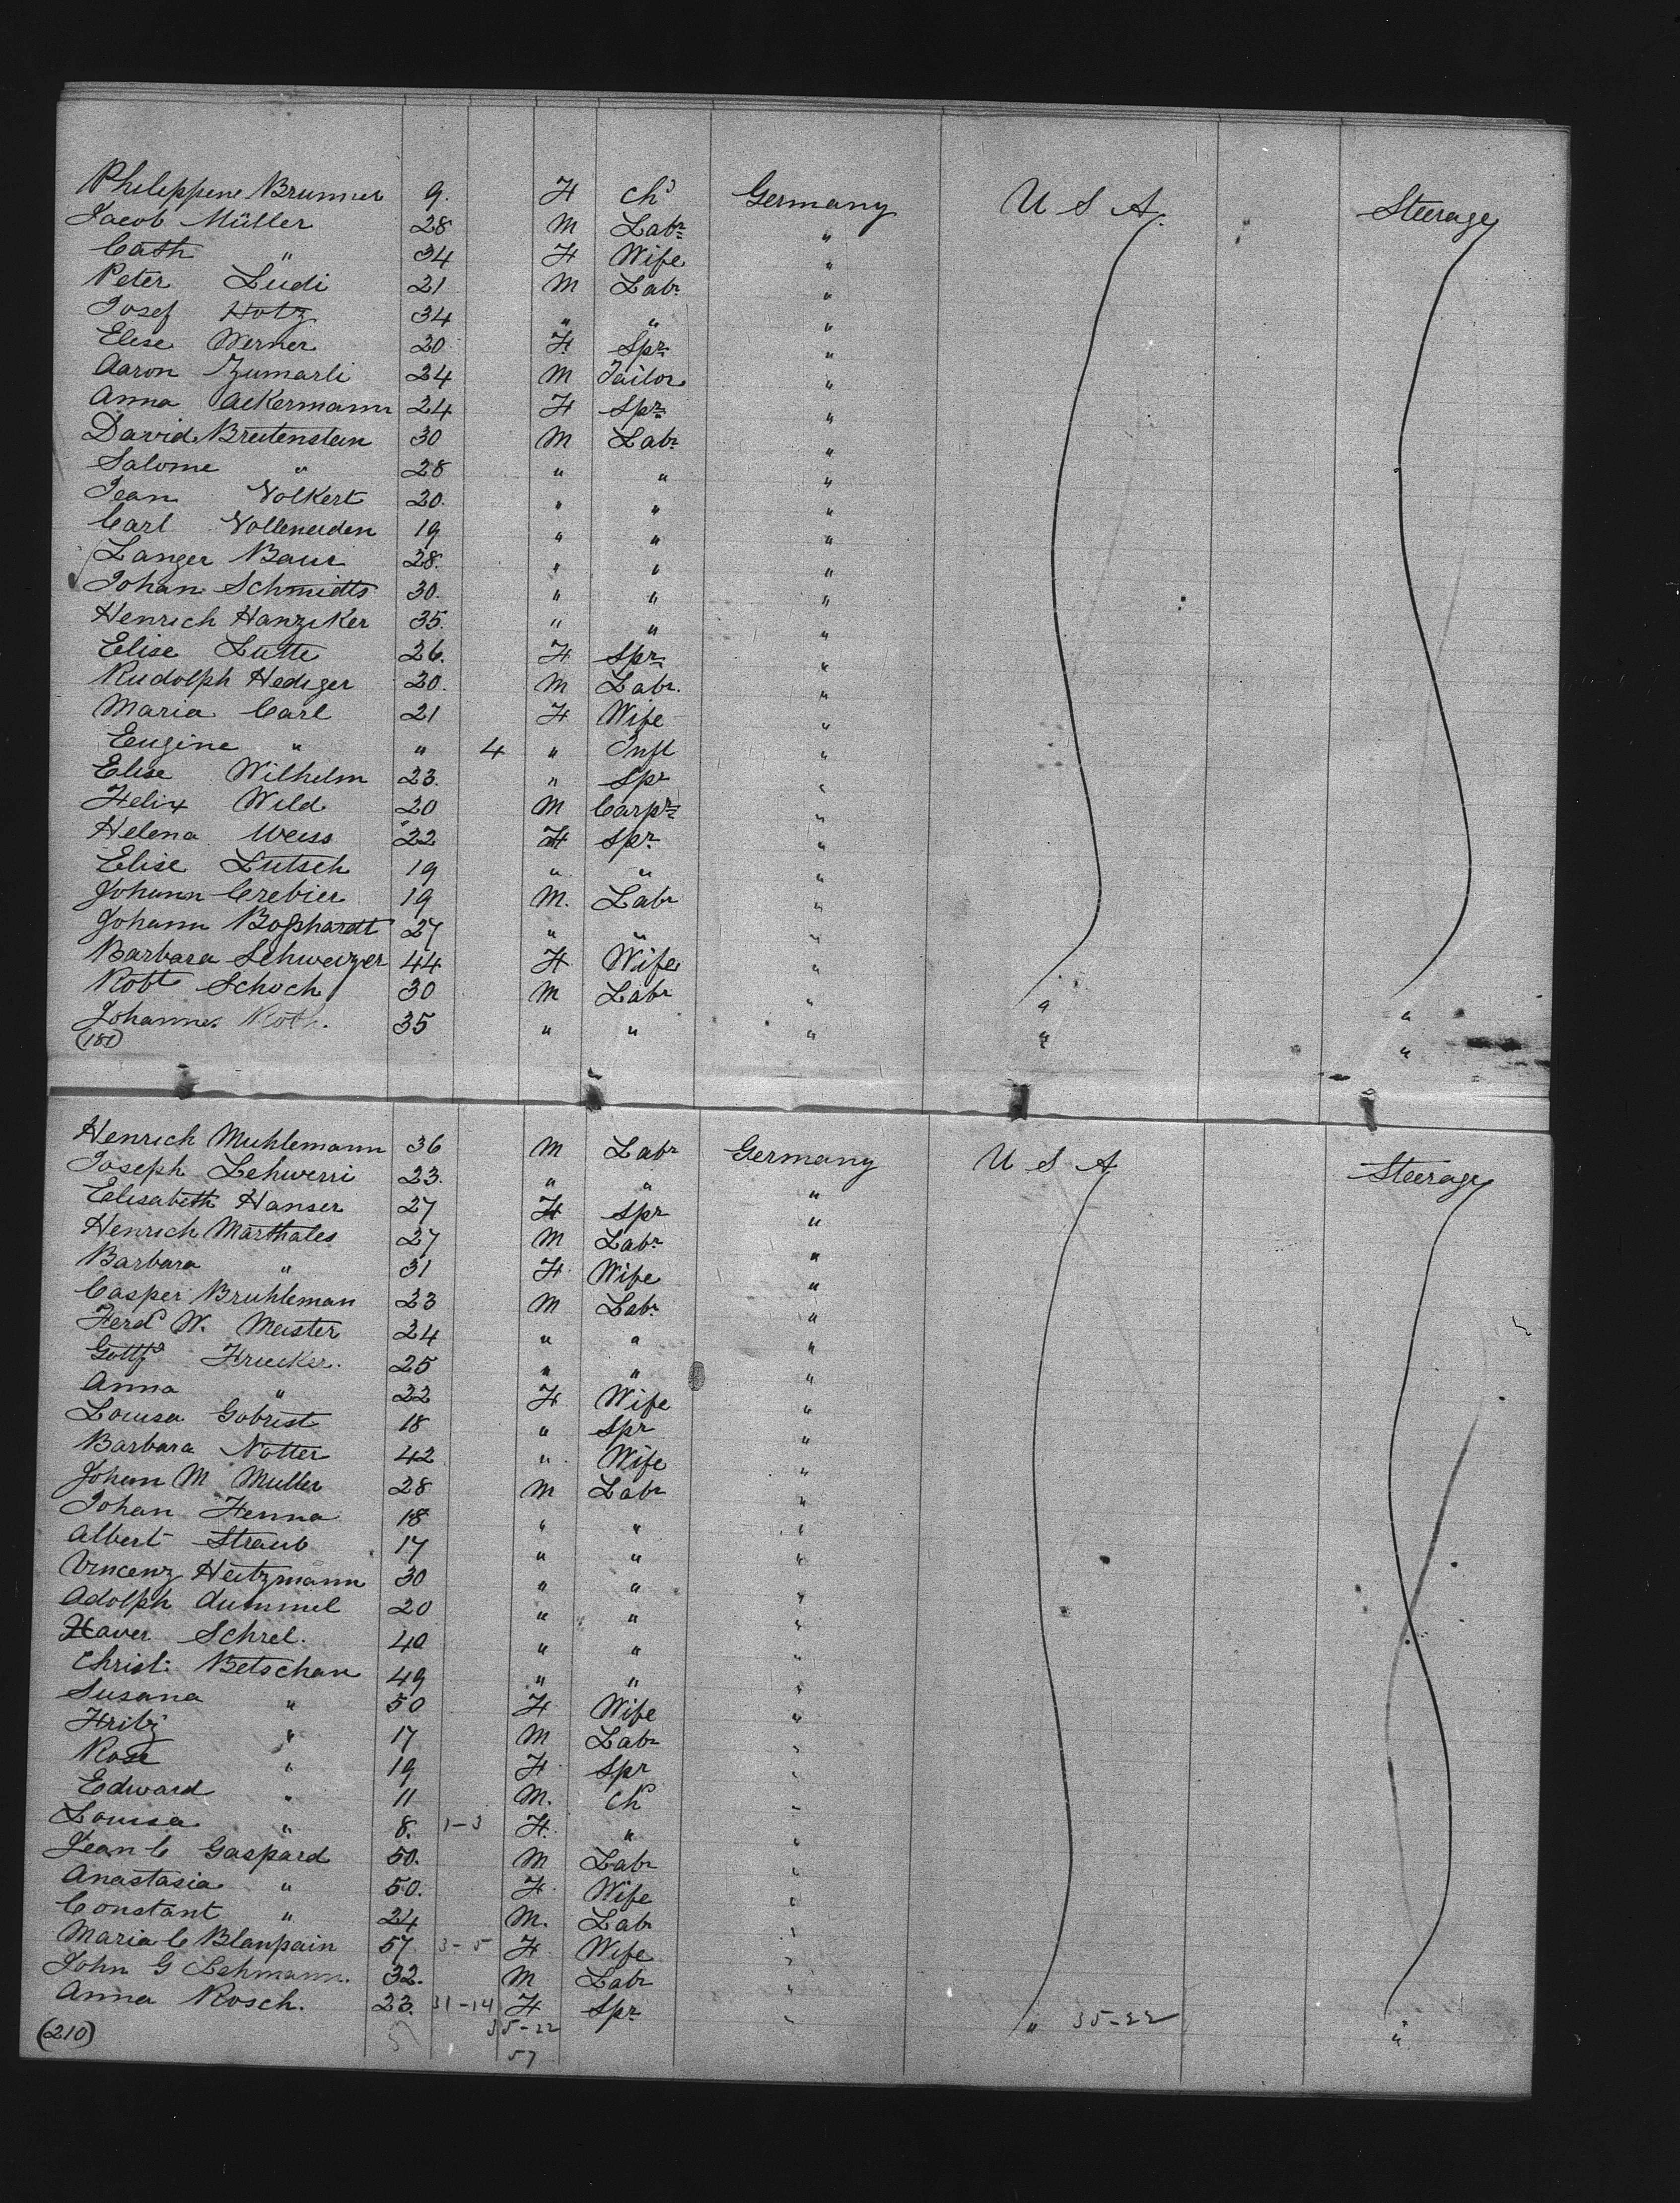 Philippine Brunner 9. F chd Germany U S A. Steerage
Jacob Müller 28 M Labr "
Cath " 34 F Wife "
Peter Ludi 21 M Labr "
Josef Hotz 34 " " "
Elise Werner 20 F. Spr "
Aaron Zumarli 24 M Tailor "
Anna Ackermann 24 F Spr "
David Breitenstein 30 M Labr "
Salome " 28 " " "
Jean Volkert 20. " " "
Carl 19 " " "
Langer Baur 28. " " "
Johan Schmidts 30. " " "
Henrich Hanziker 35. " " "
Elise Lutte 26. F Spr "
Rudolph Hediger 20. M Labr. "
Maria Carl 21 F Wife "
Eugine " " 4 " Inft "
Elise Wilhelm 23. " Spr "
Felix Wild 20 M Carpr "
Helena Weiss 22 F Spr "
Elise Lutsch 19 " " "
Johann Crebier 19 M. Labr "
Johann Boßhardt 27 " " "
Barbara Schweizer 44 F Wife "
Robt Schoch 30 M Labr " " "
Johannes Roth. 35 " " " " "
(181)
Henrich Muhlemann 36 M Labr Germany U S A Steerage
Joseph 23. " " "
Elisabeth Hanser 27 F Spr "
Henrich Marthales 27 M Labr "
Barbara " 31 F Wife "
Casper Bruhleman 23 M Labr "
Ferd W. Meister 24 " " "
Gottfd 25 " " "
Anna " 22 F Wife "
Louisa Gobrist 18 " Spr "
Barbara Notter 42 " Wife "
Johann M Muller 28 M Labr "
Johan Henna 18 " " "
Albert Straub 17 " " "
Vincenz Heitzmann 30 " " "
Adolph Aummel 20 " " "
Xaver Schrel. 40 " " "
Christ: Betschan 49 " " "
Susana " 50 F Wife "
Fritz " 17 M Labr "
Rose " 19 F Spr "
Edward " 11 M. chd "
Louisa " 8. 1-3 F. " "
Jean C Gaspard 50. M Labr "
Anastasia " 50. F. Wife "
Constant " 24 M. Labr "
Maria C Blanpain 57 3-5 F Wife "
John G Lehmann. 32. M Labr "
Anna Rosch. 23. 31-14 F Spr " " 35-22 "
(210) 35-22
57